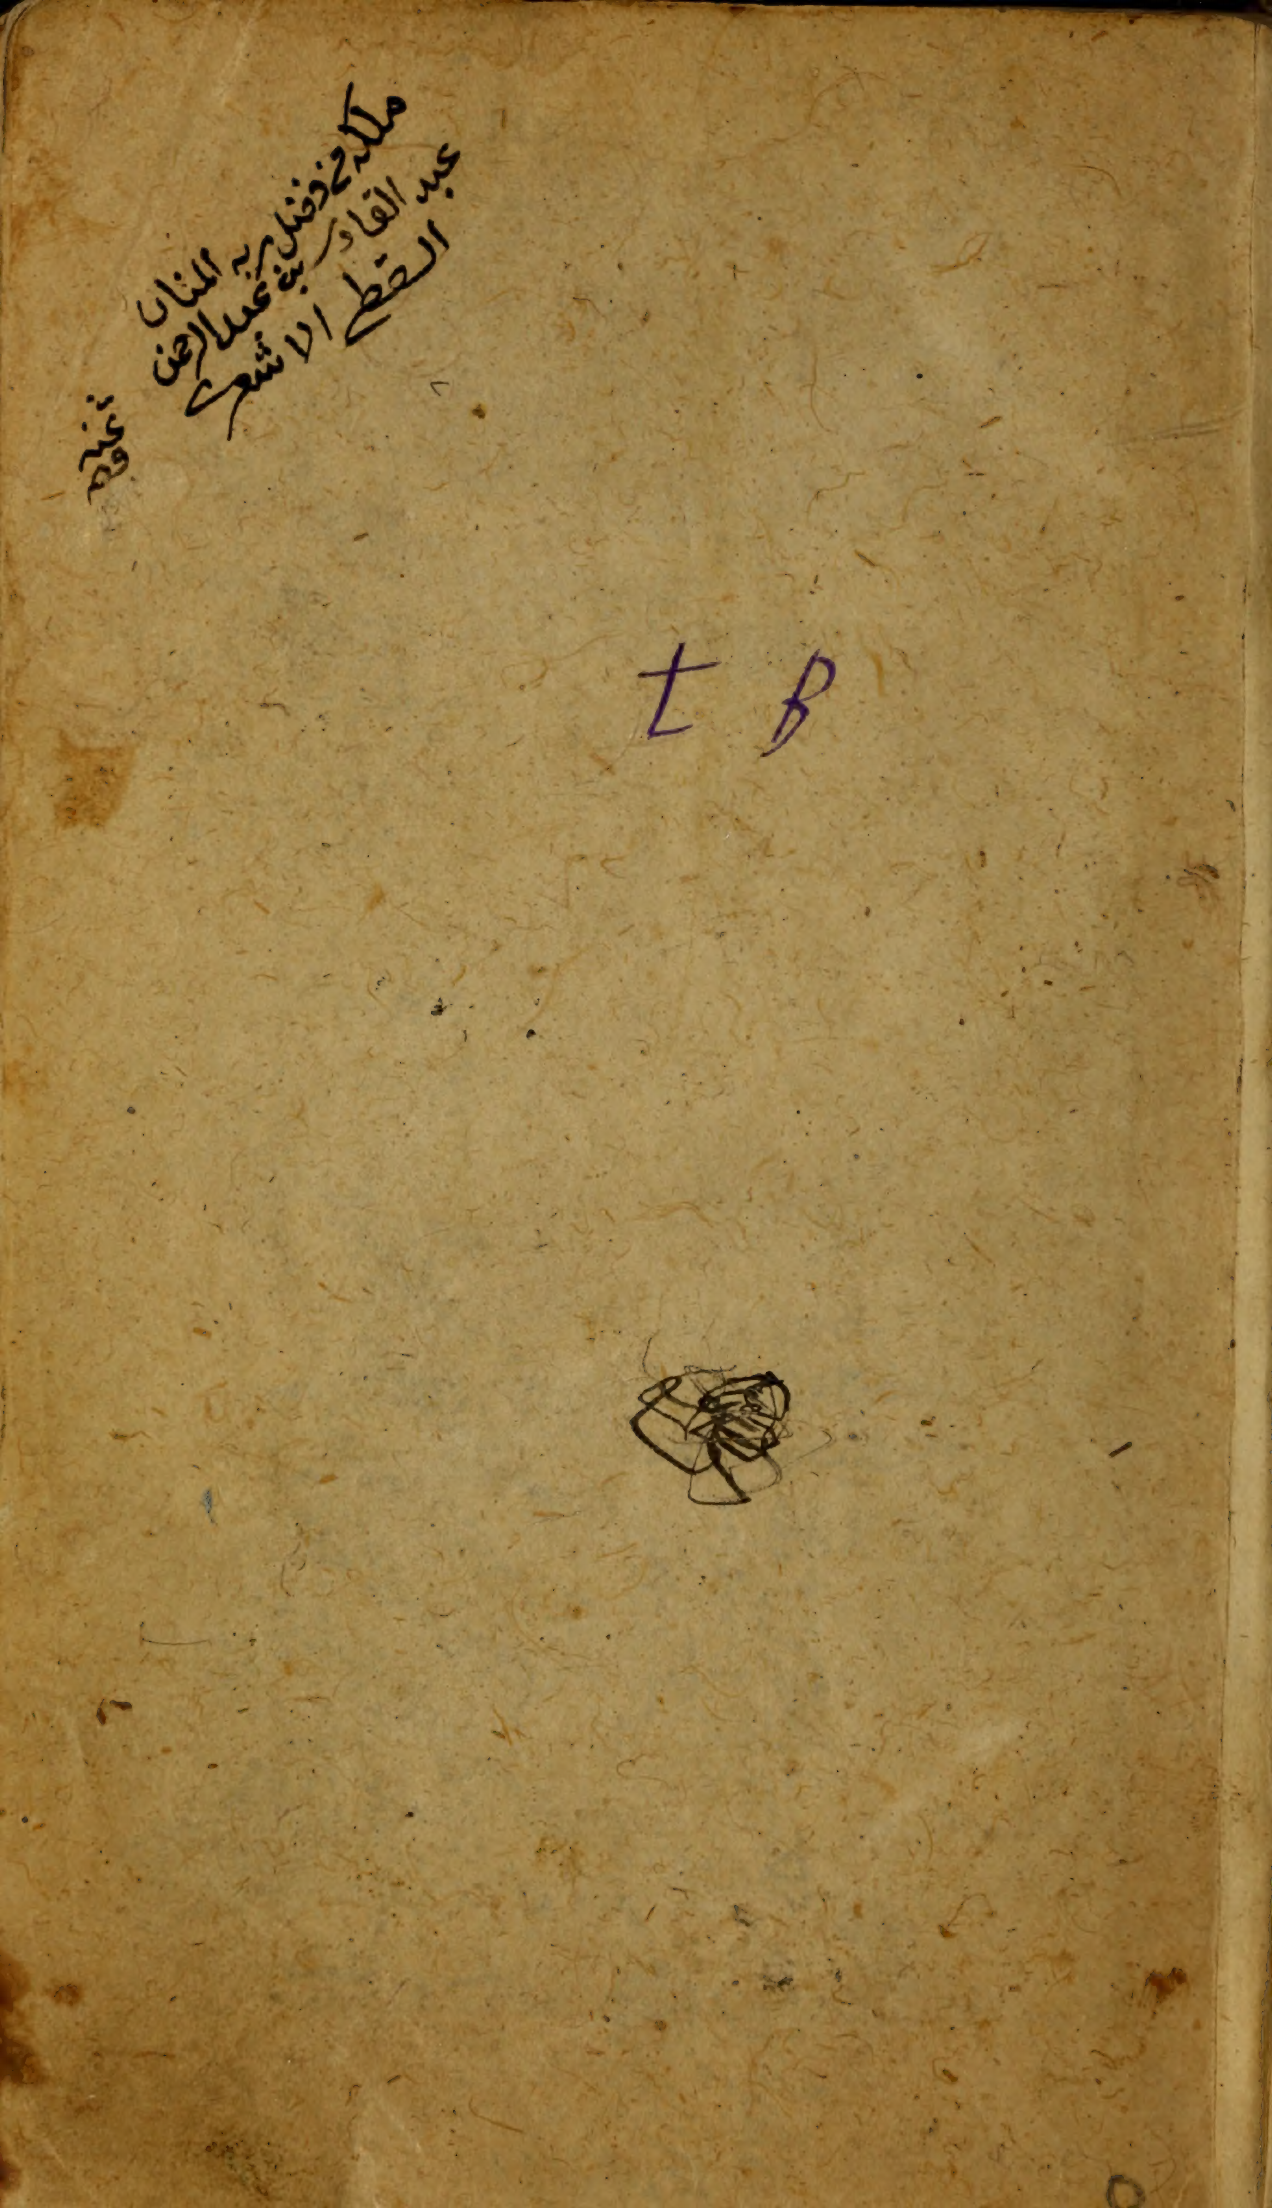 ملكه من فضل ربه المنان
عبد القادر بن عبد الرحمن
القط الاشعري
ثمنه
t B